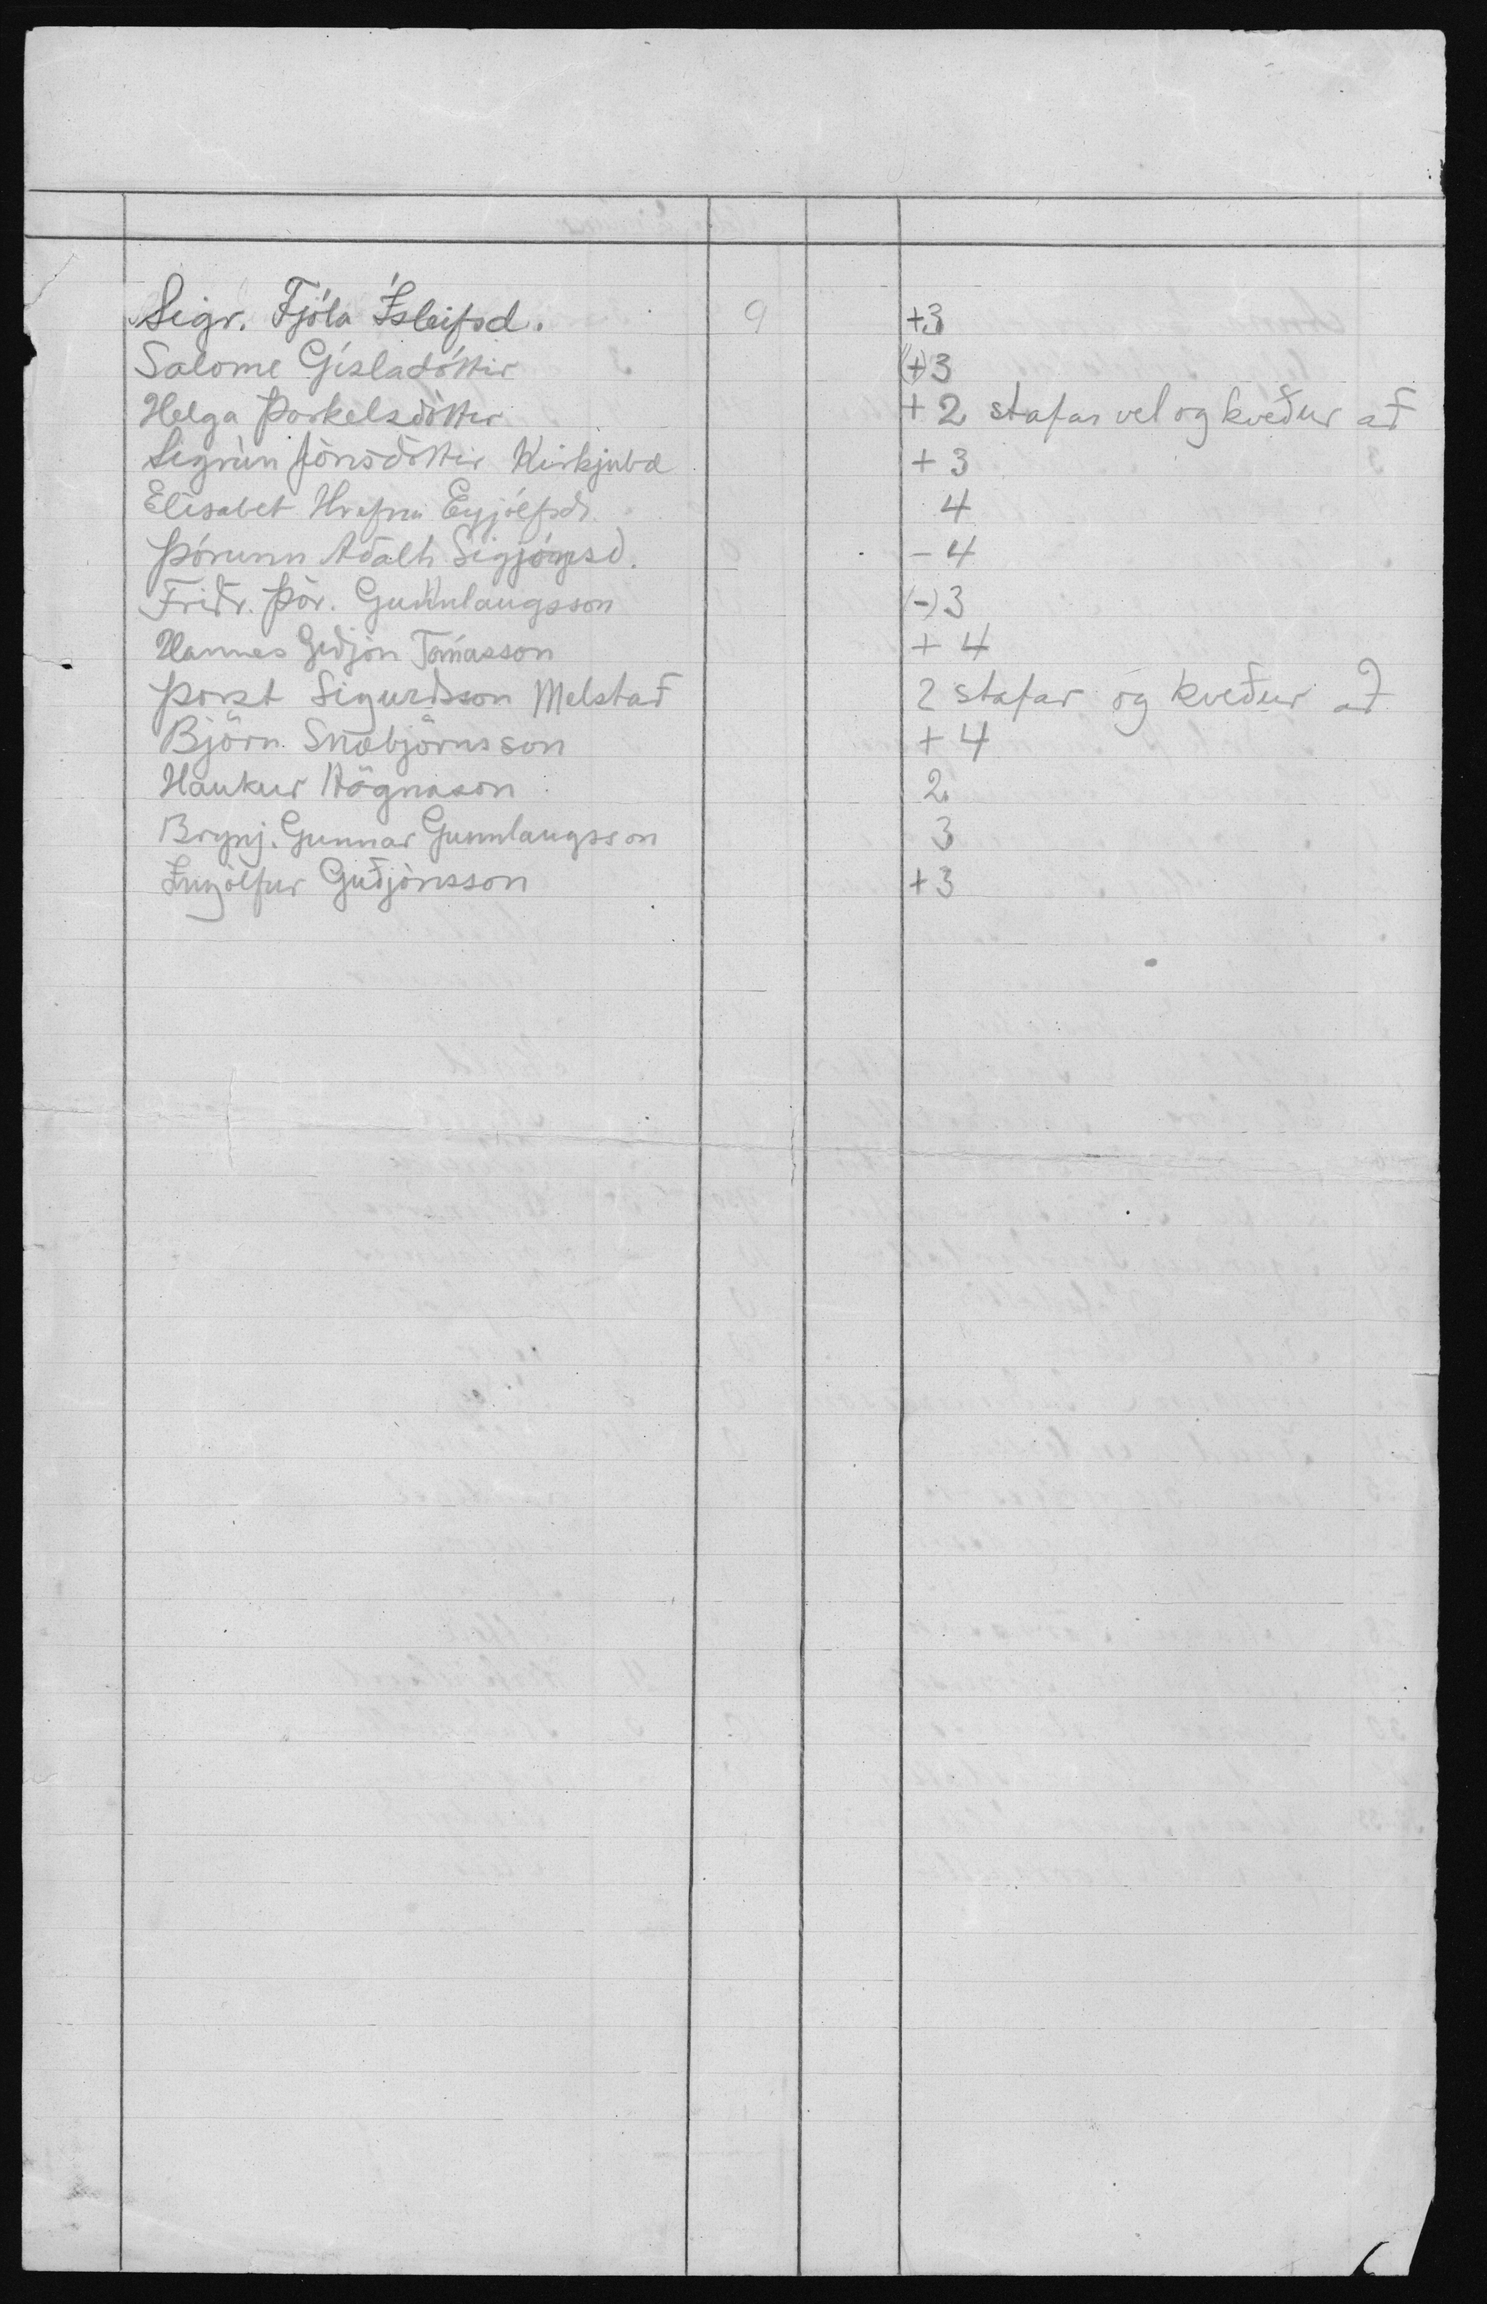 Sigr. Fjóla Ísleifsd. 9 +3
Salome Gísladóttir (+)3
Helga Þorkelsdóttir +2 stafar vel og kveður að
Sigrún Jónsdóttir Kirkjubæ +3
Elísabet Hrefna Eyjólfsd. 4
Þórunn Aðalh Sigjónsd. -4
Friðr. Þór. Gunnlaugsson (-)3
Hannes Guðjón Tómasson +4
Þorst Sigurðsson Melstað 2 stafar og kveður að
Björn Snæbjörnsson +4
Haukur Högnason 2
Brynj. Gunnar Gunnlaugsson 3
Ingólfur Guðjónsson +3